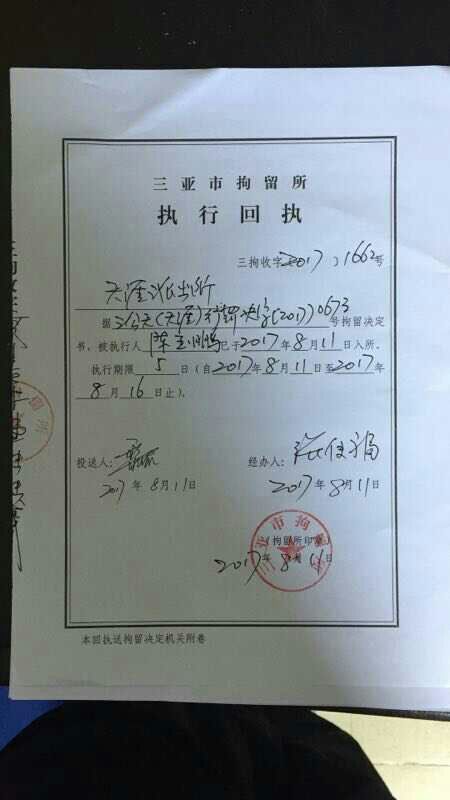 三亚市拘留所
执行回执
三拘收字〔2017〕1662号
天涯派出所
据三公天(天涯)行罚决字(2017)0673号拘留决定
书,被执行人 已于2017年8月11日入所。
执行期限5日(自2017年8月11日至2017年
8月16日止)。
投送人:
经办人:
2017年8月11日
2017年8月11日
(拘留所印章)
2017年8月11日
三亚市拘留所
本回执送拘留决定机关附卷